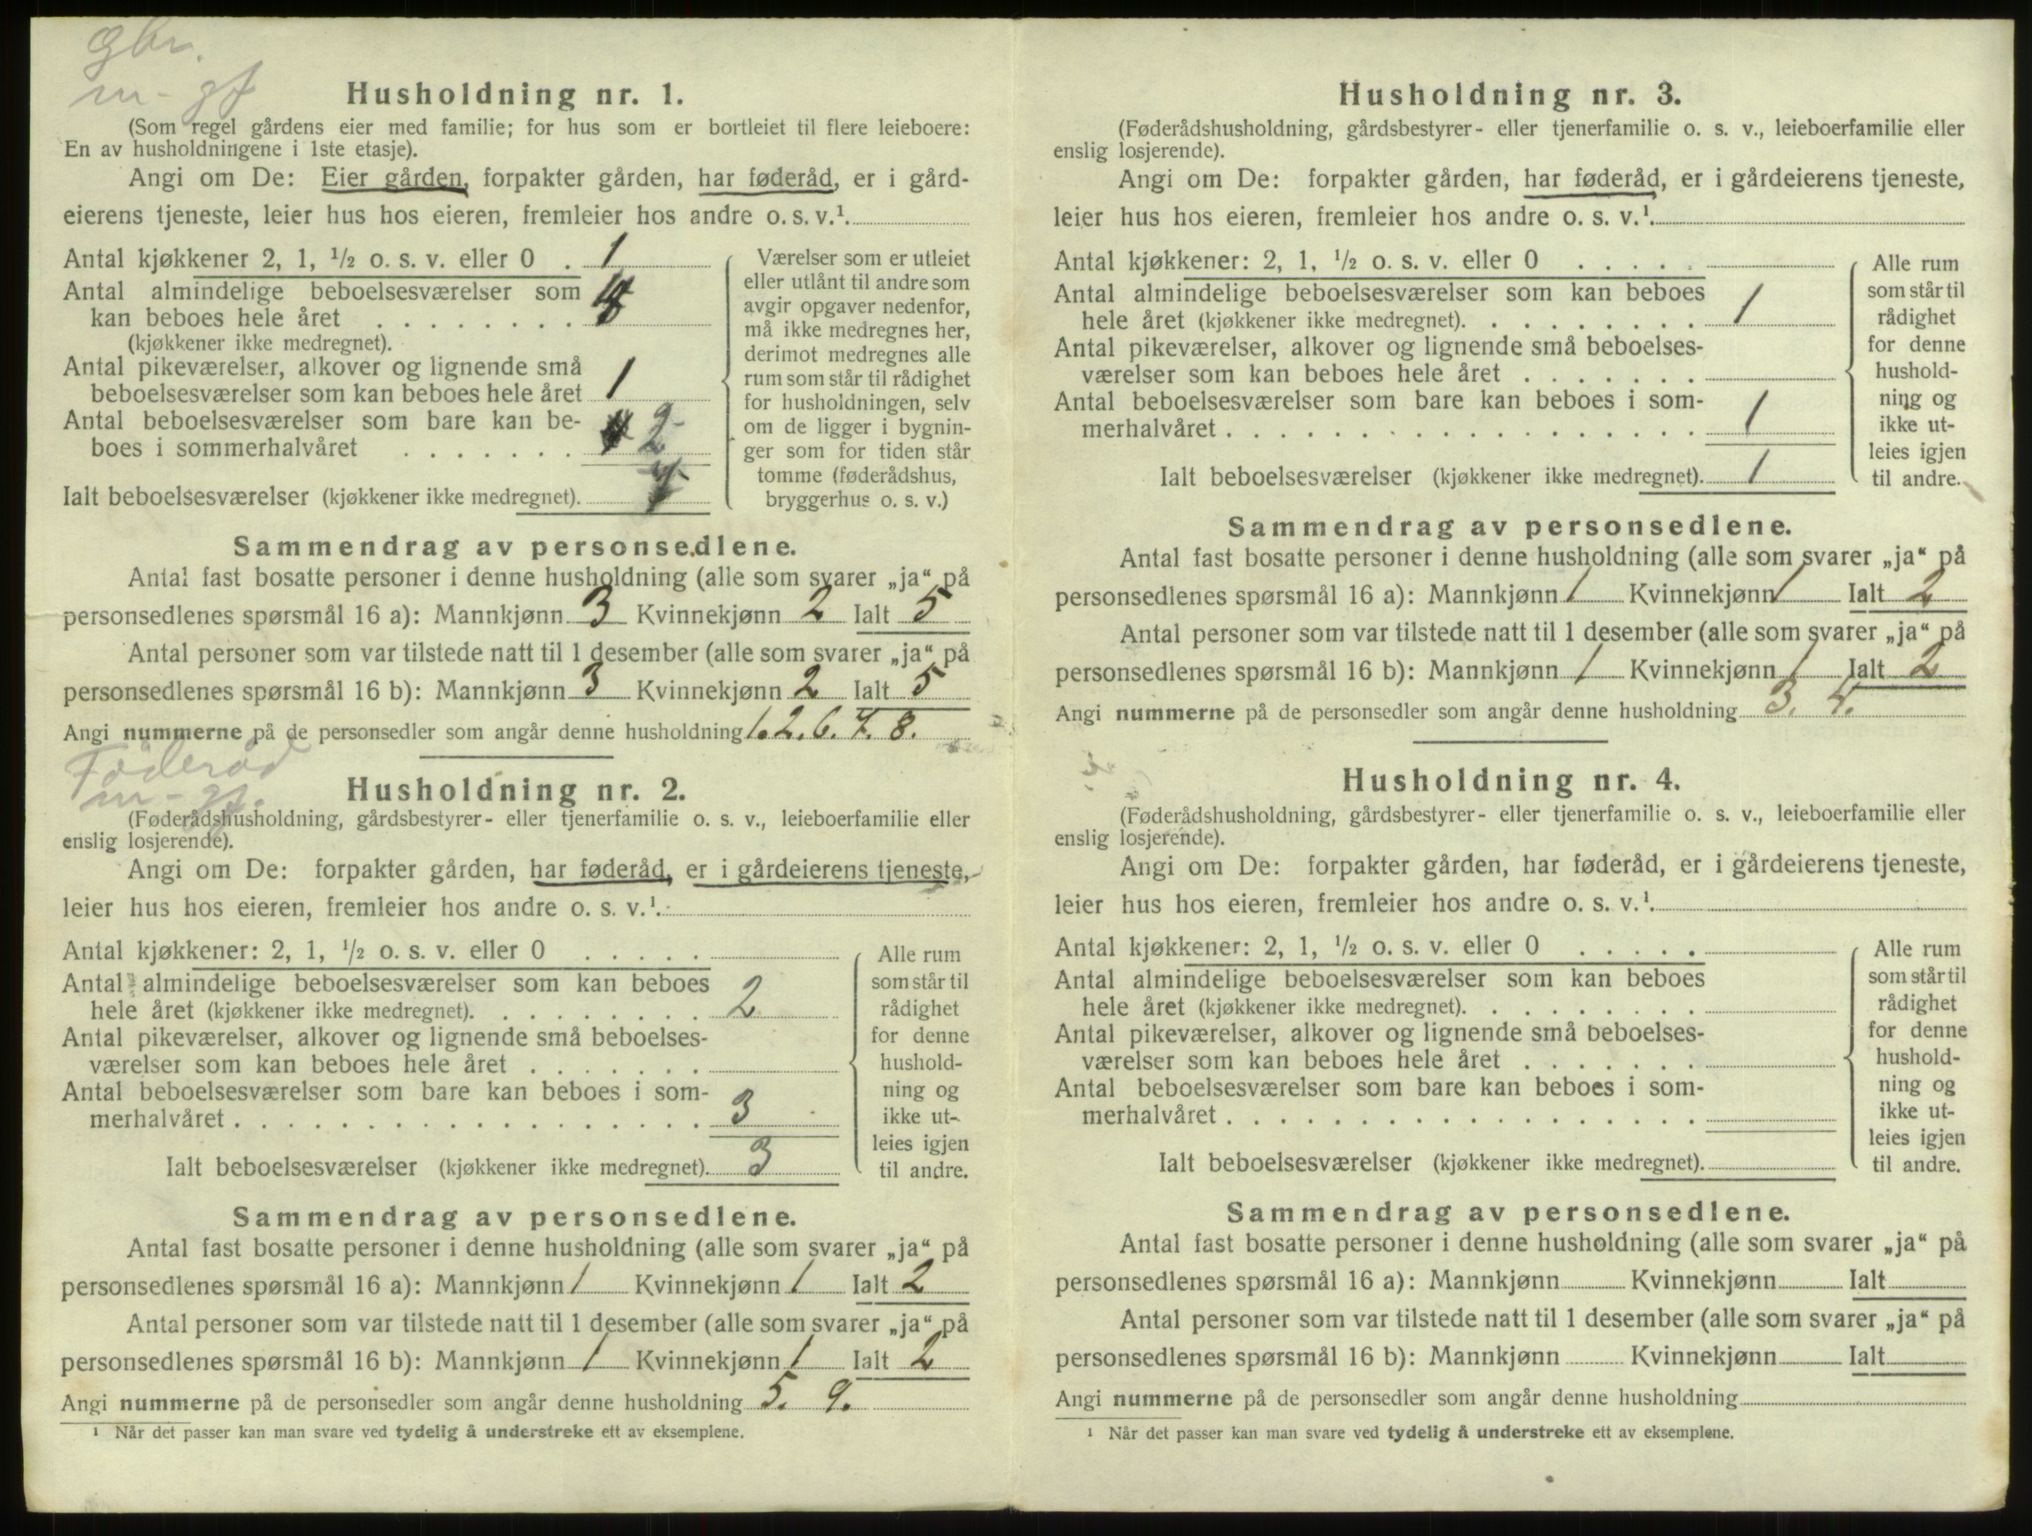 gbr.
m - gf
Husholdning nr. 1.
(Som regel gårdens eier med familie; for hus som er bortleiet til flere leieboere:
En av husholdningene i 1ste etasje).
Angi om De: Eier gården, forpakter gården, har føderåd, er i gård-
eierens tjeneste, leier hus hos eieren, fremleier hos andre o. s. v.¹
Antal kjøkkener 2, 1, ½ o. s. v. eller 0 . 1
Antal almindelige beboelsesværelser som
kan beboes hele året . . . . . . . .
(kjøkkener ikke medregnet).
Antal pikeværelser, alkover og lignende små
beboelsesværelser som kan beboes hele året 1
Antal beboelsesværelser som bare kan be-
boes i sommerhalvåret . . . . . . . 2
Ialt beboelsesværelser (kjøkkener ikke medregnet).
Værelser som er utleiet
eller utlånt til andre som
avgir opgaver nedenfor,
må ikke medregnes her,
derimot medregnes alle
rum som står til rådighet
for husholdningen, selv
om de ligger i bygnin-
ger som for tiden står
tomme (føderådshus,
bryggerhus o. s. v.)
Sammendrag av personsedlene.
Antal fast bosatte personer i denne husholdning (alle som svarer „ja“ på
personsedlenes spørsmål 16 a): Mannkjønn 3 Kvinnekjønn 2 Ialt 5
Antal personer som var tilstede natt til 1 desember (alle som svarer „ja“ på
personsedlenes spørsmål 16 b): Mannkjønn 3 Kvinnekjønn 2 Ialt 5
Angi nummerne på de personsedler som angår denne husholdning 1. 2. 6. 7. 8.
Føderåd
m - gf.
Husholdning nr. 2.
(Føderådshusholdning, gårdsbestyrer- eller tjenerfamilie o. s. v., leieboerfamilie eller
enslig losjerende).
Angi om De: forpakter gården, har føderåd, er i gårdeierens tjeneste,
leier hus hos eieren, fremleier hos andre o. s. v.¹
Antal kjøkkener: 2, 1, ½ o. s. v. eller 0 . . . . .
Antal almindelige beboelsesværelser som kan beboes
hele året (kjøkkener ikke medregnet). . . . . . . . . 2
Antal pikeværelser, alkover og lignende små beboelses-
værelser som kan beboes hele året . . . . . . .
Antal beboelsesværelser som bare kan beboes i som-
merhalvåret . . . . . . . . . . . . . . . . . . 3
Ialt beboelsesværelser (kjøkkener ikke medregnet). 3
Alle rum
som står til
rådighet
for denne
hushold-
ning og
ikke ut-
leies igjen
til andre.
Sammendrag av personsedlene.
Antal fast bosatte personer i denne husholdning (alle som svarer „ja“ på
personsedlenes spørsmål 16 a): Mannkjønn 1 Kvinnekjønn 1 Ialt 2
Antal personer som var tilstede natt til 1 desember (alle som svarer „ja“ på
personsedlenes spørsmål 16 b): Mannkjønn 1 Kvinnekjønn 1 Ialt 2
Angi nummerne på de personsedler som angår denne husholdning 5. 9.
¹ Når det passer kan man svare ved tydelig å understreke ett av eksemplene.
Husholdning nr. 3.
(Føderådshusholdning, gårdsbestyrer- eller tjenerfamilie o. s. v., leieboerfamilie eller
enslig losjerende).
Angi om De: forpakter gården, har føderåd, er i gårdeierens tjeneste,
leier hus hos eieren, fremleier hos andre o. s. v.¹
Antal kjøkkener: 2, 1, ½ o. s. v. eller 0 . . . . .
Antal almindelige beboelsesværelser som kan beboes
hele året (kjøkkener ikke medregnet). . . . . . . . . 1
Antal pikeværelser, alkover og lignende små beboelses-
værelser som kan beboes hele året . . . . . . .
Antal beboelsesværelser som bare kan beboes i som-
merhalvåret . . . . . . . . . . . . . . . . . . 1
Ialt beboelsesværelser (kjøkkener ikke medregnet). 1
Alle rum
som står til
rådighet
for denne
hushold-
ning og
ikke ut-
leies igjen
til andre.
Sammendrag av personsedlene.
Antal fast bosatte personer i denne husholdning (alle som svarer „ja“ på
personsedlenes spørsmål 16 a): Mannkjønn 1 Kvinnekjønn 1 Ialt 2
Antal personer som var tilstede natt til 1 desember (alle som svarer „ja“ på
personsedlenes spørsmål 16 b): Mannkjønn 1 Kvinnekjønn 1 Ialt 2
Angi nummerne på de personsedler som angår denne husholdning 3. 4.
Husholdning nr. 4.
(Føderådshusholdning, gårdsbestyrer- eller tjenerfamilie o. s. v., leieboerfamilie eller
enslig losjerende).
Angi om De: forpakter gården, har føderåd, er i gårdeierens tjeneste,
leier hus hos eieren, fremleier hos andre o. s. v.¹
Antal kjøkkener: 2, 1, ½ o. s. v. eller 0 . . . . .
Antal almindelige beboelsesværelser som kan beboes
hele året (kjøkkener ikke medregnet). . . . . . . . .
Antal pikeværelser, alkover og lignende små beboelses-
værelser som kan beboes hele året . . . . . . .
Antal beboelsesværelser som bare kan beboes i som-
merhalvåret . . . . . . . . . . . . . . . . . .
Ialt beboelsesværelser (kjøkkener ikke medregnet).
Alle rum
som står til
rådighet
for denne
hushold-
ning og
ikke ut-
leies igjen
til andre.
Sammendrag av personsedlene.
Antal fast bosatte personer i denne husholdning (alle som svarer „ja“ på
personsedlenes spørsmål 16 a): Mannkjønn Kvinnekjønn Ialt
Antal personer som var tilstede natt til 1 desember (alle som svarer „ja“ på
personsedlenes spørsmål 16 b): Mannkjønn Kvinnekjønn Ialt
Angi nummerne på de personsedler som angår denne husholdning
¹ Når det passer kan man svare ved tydelig å understreke ett av eksemplene.